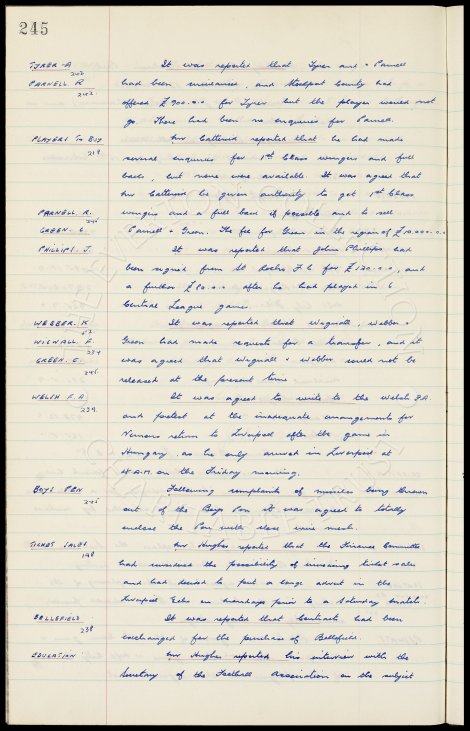 245
TYRER. A
242
It was reported that Tyrer and Parnell
PARNELL R
242
had been circularised, and Stockport County had
offered £900.0.0 for Tyrer but the player would not
go. There had been no enquiries for Parnell.
PLAYERS TO BUY
219
Mr Catterick reported that he had made
several enquiries for 1st Class wingers and full
backs, but none were available. It was agreed that
Mr Catterick be given authority to get 1st Class
PARNELL. R.
wingers and a full back if possible and to sell
GREEN. C.
Parnell & Green. The fee for Green in the region of £10.000.0.0
PHILLIPS. J.
It was reported that John Phillips had
been signed from St Rochs F.C for £120.0.0, and
a further £80.0.0 after he had played in 6
Central League games.
WEBBER. K
It was reported that Wignall, Webber &
WIGNALL. F.
234
Green had made requests for a transfer, and it
GREEN. C.
was agreed that Wignall & Webber would not be
released at the present time
WELSH F.A
239.
It was agreed to write to the Welsh F.A.
and protest at the inadequate arrangements for
Vernons return to Liverpool after the game in
Hungary, as he only arrived in Liverpool at
A.M. on the Friday morning.
BOYS PEN
Following complaints of missiles being thrown
out of the Boys Pen it was agreed to totally
enclose the Pen with close wire mesh.
TICKET SALES
198
Mr Hughes reported that the Finance Committee
had considered the possibility of increasing ticket sales
and had decided to put a large advert in the
Liverpool Echo on Mondays prior to a Saturday match.
BELLEFIELD
238
It was reported that Contracts had been
exchanged for the purchase of Bellefield.
EDUCATION
Mr Hughes reported his interview with the
Secretary of the Football Association on the subject